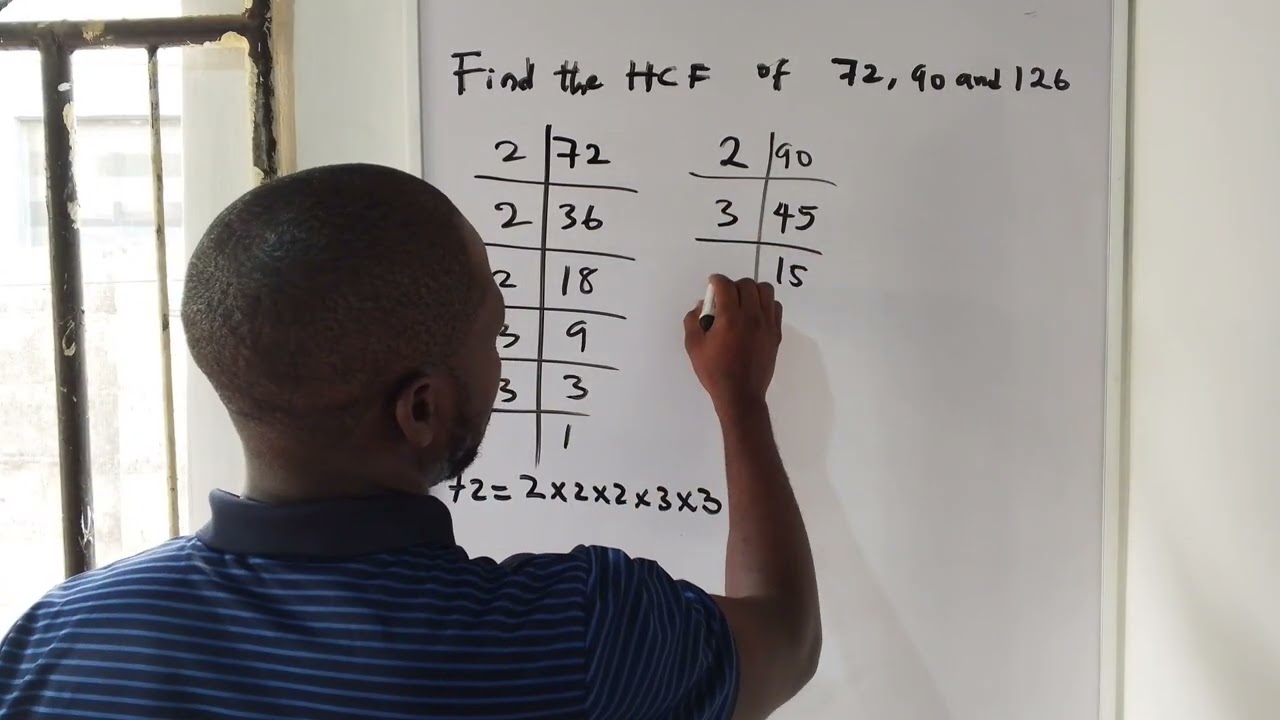 Find the HCF of 72, 90 and 126
2 72
2 36
2 18
3 9
3 3
1
72 = 2 x 2 x 2 x 3 x 3
2 90
3 45
15